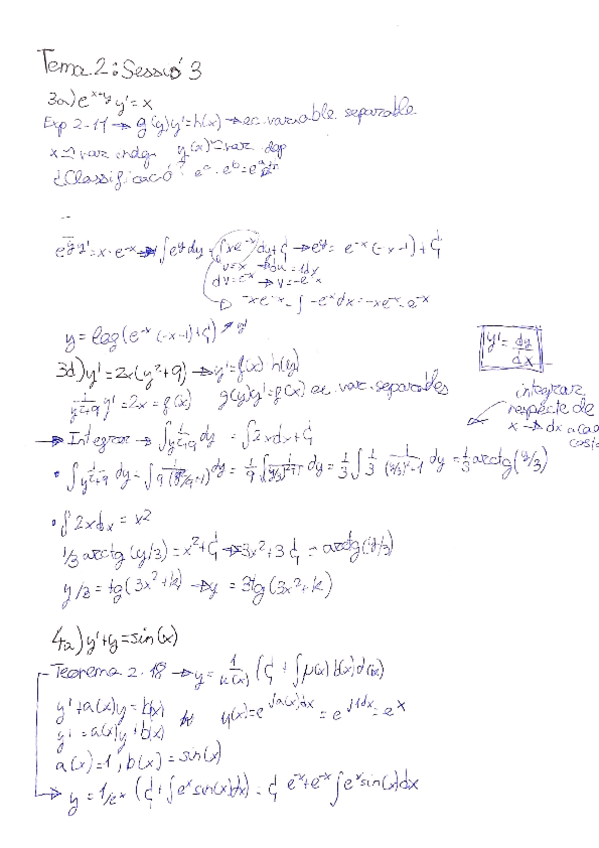 Tema 2: Sessió 3
3a) e^{x+y} y' = x
Exp 2.11 → g(y)y' = h(x) → ec. variable separable
x = var indep y(x) = var dep
¿Classificació? e^a · e^b = e^{a+b}
...
e^y y' = x · e^{-x} → ∫ e^y dy = ∫ x e^{-x} dy + C₁ → e^y = e^{-x}(-x-1) + C₁
u = x → du = 1dx
dv = e^{-x} → v = -e^{-x}
→ -xe^{-x} - ∫ -e^{-x} dx = -xe^{-x} - e^{-x}
y = log(e^{-x}(-x-1) + C₁)
y' = dy/dx
3d) y' = 2x(y²+9) → y' = f(x) h(y)
1/(y²+9) y' = 2x = f(x) g(y)y' = f(x) ec var. separables
integrar
respecte de
x → dx
→ Integrar → ∫ 1/(y²+9) dy = ∫ 2xdx + C₁
• ∫ 1/(y²+9) dy = ∫ 1/(9(y²/9+1)) dy = 1/9 ∫ 1/((y/3)²+1) dy = 1/3 ∫ 1/3 1/((y/3)²+1) dy = 1/3 arctg(y/3)
• ∫ 2xdx = x²
1/3 arctg(y/3) = x² + C₁ → 3x² + 3C₁ = arctg(y/3)
y/3 = tg(3x²+k) → y = 3tg(3x²+k)
4a) y' + y = sin(x)
Teorema 2.18 → y = 1/μ(x) (C₁ + ∫ μ(x) b(x) dx)
y' + a(x)y = b(x) μ(x) = e^{∫a(x)dx} = e^{∫1dx} = e^x
y' = a(x)y + b(x)
a(x) = 1, b(x) = sin(x)
→ y = 1/e^x (C₁ + ∫ e^x sin(x)dx) = C₁ e^{-x} + e^{-x} ∫ e^x sin(x)dx